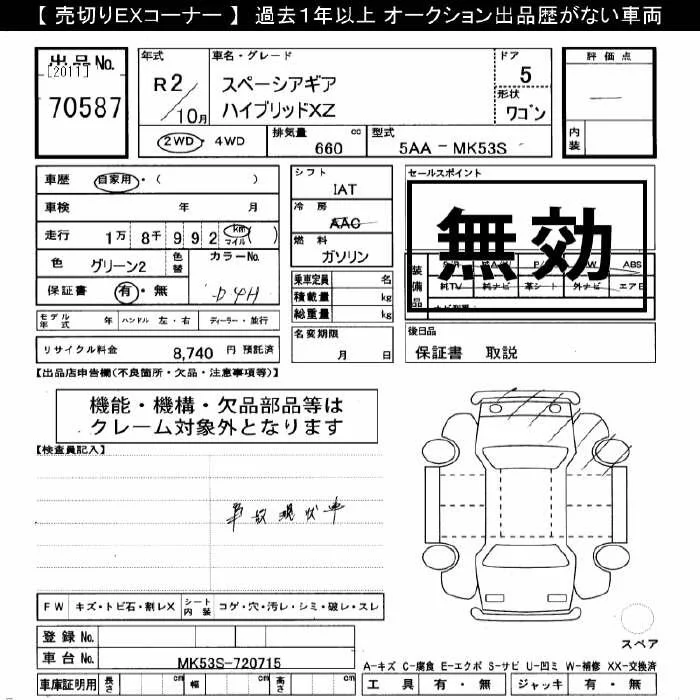 【 売切りEXコーナー 】 過去1年以上 オークション出品歴がない車両
出品No.
[2011]
70587
年式
R2/10月
車名・グレード
スペーシアギア
ハイブリッドXZ
ドア
5
形状
ワゴン
評価点
―
内装
2WD・4WD
排気量 660 cc
型式 5AA-MK53S
車歴 自家用・( )
車検 年 月
走行 1万 8千 9 9 2 km マイル( )
色 グリーン2 色替 カラーNo.
保証書 有・無 D4H
モデル年式 年 ハンドル 左・右 ディーラー・並行
リサイクル料金 8,740 円 預託済
シフト
IAT
冷房
AAC
燃料
ガソリン
乗車定員 名
積載量 kg
総重量 kg
名変期限
月 日
セールスポイント
無効
装備品
ABS
純TV 純ナビ 革シート 外ナビ エアB
後日品
保証書 取説
【出品店申告欄(不良箇所・欠品・注意事項等)】
機能・機構・欠品部品等は
クレーム対象外となります
【検査員記入】
事故現状車
FW キズ・トビ石・割レX シート内装 コゲ・穴・汚レ・シミ・破レ・スレ
登録No.
車台No. MK53S-720715
車庫証明用 長さ cm 幅 cm 高さ cm
スペア
A-キズ C-腐食 E-エクボ S-サビ U-凹ミ W-補修 XX-交換済
工具 有・無 ジャッキ 有・無